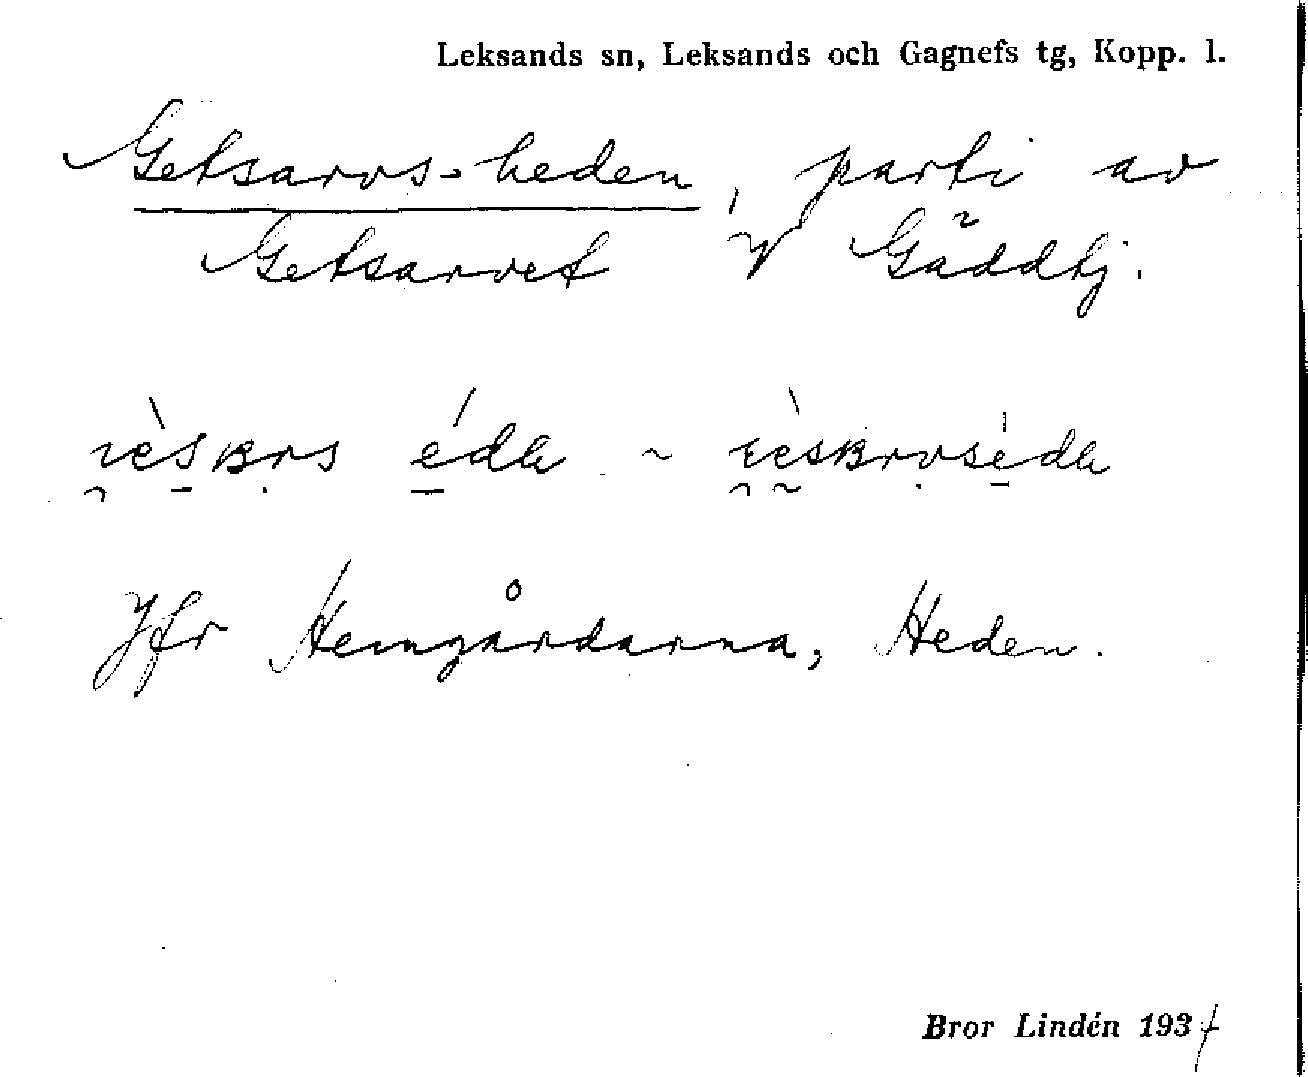 Leksands sn, Leksands och Gagnefs tg, Kopp. l.
Getsarvs-heden, parti av
Getsarvet V Gäddtj.
Jfr Hemgårdarna, Heden.
Bror Lindén 1937